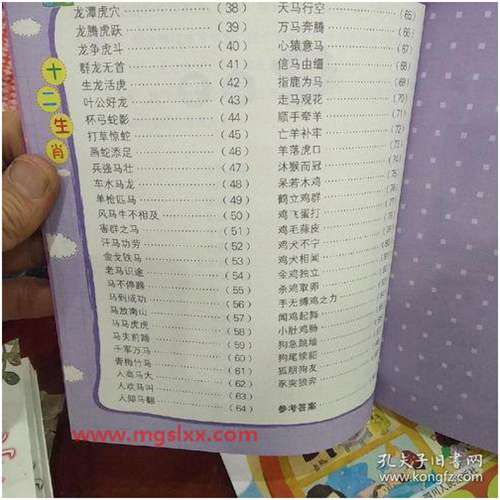 十二生肖
龙潭虎穴 (38)
龙腾虎跃 (39)
龙争虎斗 (40)
群龙无首 (41)
生龙活虎 (42)
叶公好龙 (43)
杯弓蛇影 (44)
打草惊蛇 (45)
画蛇添足 (46)
兵强马壮 (47)
车水马龙 (48)
单枪匹马 (49)
风马牛不相及 (50)
害群之马 (51)
汗马功劳 (52)
金戈铁马 (53)
老马识途 (54)
马不停蹄 (55)
马到成功 (56)
马放南山 (57)
马马虎虎 (58)
马失前蹄 (59)
千军万马 (60)
青梅竹马 (61)
人高马大 (62)
人欢马叫 (63)
人仰马翻 (64)
天马行空 (65)
万马奔腾 (66)
心猿意马 (67)
信马由缰 (68)
指鹿为马 (69)
走马观花 (70)
顺手牵羊 (71)
亡羊补牢 (72)
羊落虎口
沐猴而冠
呆若木鸡
鹤立鸡群
鸡飞蛋打
鸡毛蒜皮
鸡犬不宁
鸡犬相闻
金鸡独立
杀鸡取卵
手无缚鸡之力
闻鸡起舞
小肚鸡肠
狗急跳墙
狗尾续貂
狐朋狗友
豕突狼奔
参考答案
www.mgslxx.com
孔夫子旧书网